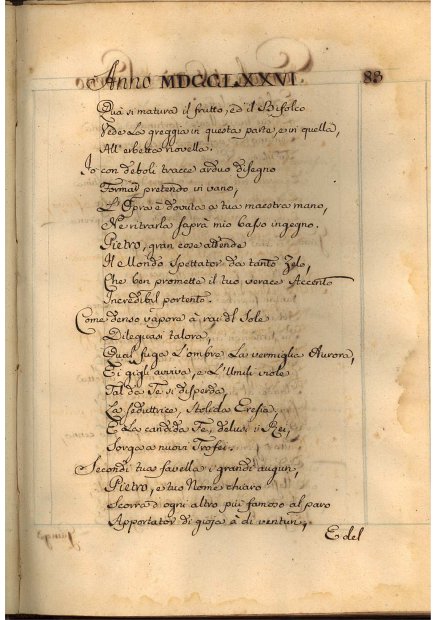 Anno MDCCLXXVI 83
Quà si matura il frutto, ed il Bifolco
Vede la greggia in questa parte, e in quella,
All'erbetta novella.
Io con deboli tracce arduo disegno
Formar pretendo in vano,
L'Opra è dovuta a tua maestra mano,
Ne ritrarla saprà mio basso ingegno.
Pietro, gran cose attende
Il Mondo Spettator da tanto Zelo,
Che ben promette il tuo verace Accento
Incredibil portento.
Come denso vapore a' rai del Sole
Dileguasi talora,
Qual fuga l'ombre la vermiglia Aurora,
E i gigli avviva, e l'Umili viole
Tal da Te si disperda,
La seduttrice, stolida Eresia,
E La candida Fe, delusi i Rei,
Sorga a nuovi Trofei.
Secondi tua favella i grandi auguri,
Pietro, e tuo Nome chiaro
Scorra d'ogni altro più famoso al paro
Apportator di gioja a' dì venturi,
E del